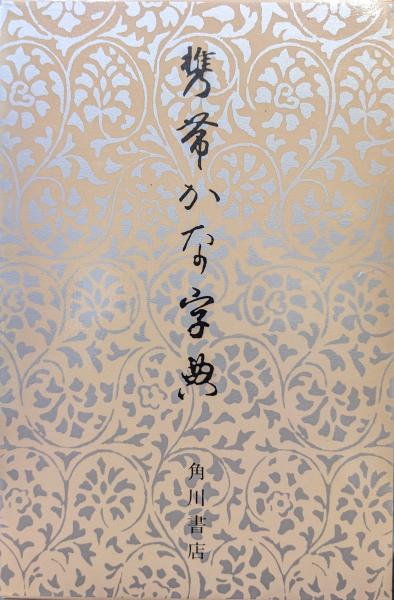 携帯かな字典
角川書店